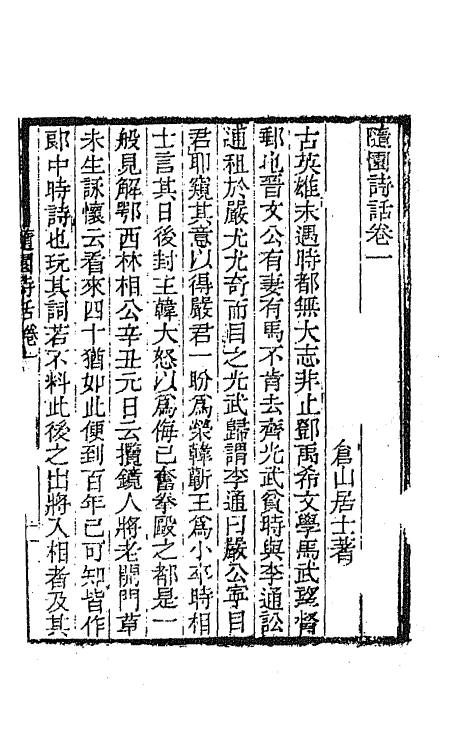 隨園詩話卷一
倉山居士著
古英雄未遇時都無大志非止鄧禹希文學馬武望督
郵也晉文公有妻有馬不肯去齊光武貧時與李通訟
逋租於嚴尤尤奇而目之光武歸謂李通曰嚴公寧目
君耶窺其意以得嚴君一盼為榮韓蘄王為小卒時相
士言其日後封王韓大怒以為侮己奮拳毆之都是一
般見解鄂西林相公辛丑元日云攬鏡人將老開門草
未生詠懷云看來四十猶如此便到百年已可知皆作
郞中時詩也玩其詞若不料此後之出將入相者及其
隨園詩話卷一
一